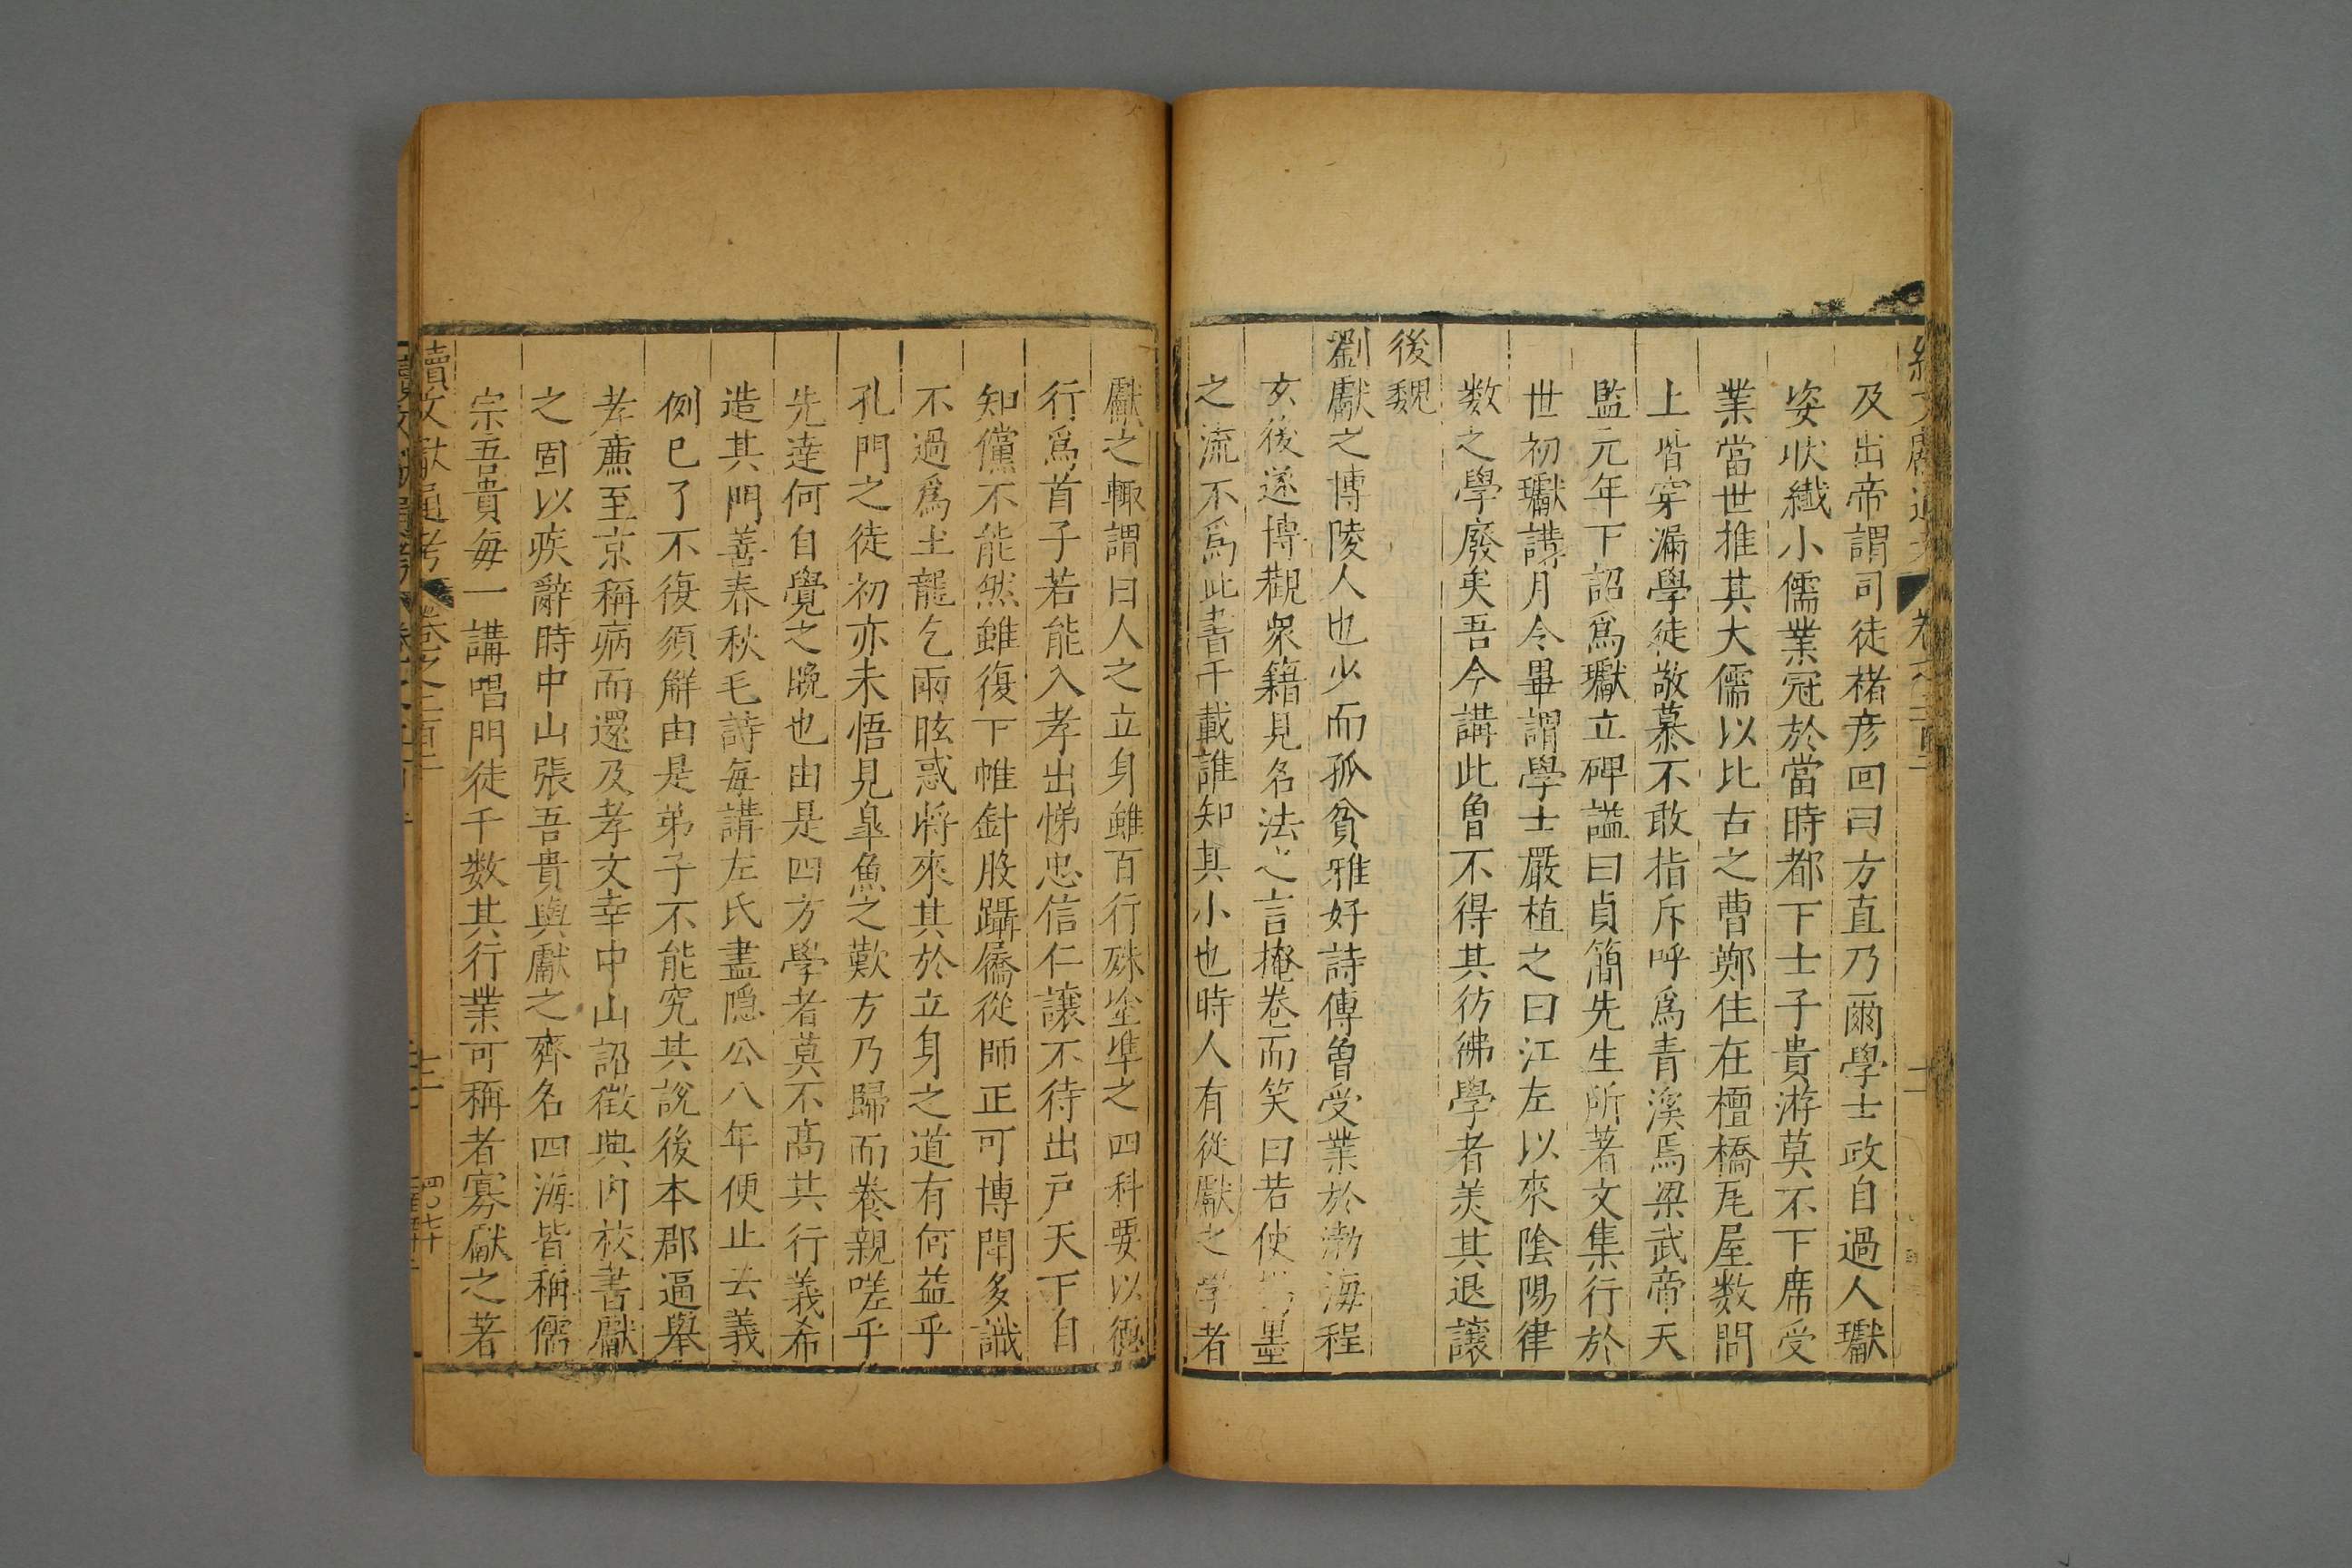 及出帝謂司徒褚彥回曰方直乃爾學士政自過人瓛
姿狀纎小儒業冠於當時都下士子貴游莫不下席受
業當世推其大儒以比古之曹鄭住在檀橋瓦屋数間
上皆穿漏學徒敬慕不敢指斥呼爲青溪焉梁武帝天
監元年下詔爲瓛立碑謚曰貞簡先生所著文集行於
世初瓛講月令畢謂學士嚴植之曰江左以來陰陽律
数之學廢矣吾今講此曾不得其彷彿學者美其退讓
後魏
劉獻之博陵人也少而孤貧雅好詩傳曾受業於渤海程
玄後遂博觀衆籍見名法之言掩卷而笑曰若使 墨
之流不爲此書千載誰知其小也時人有從獻之學者
獻之輒謂曰人之立身雖百行殊塗準之四科要以德
行爲首子若能入孝出悌忠信仁讓不待出戸天下自
知儻不能然雖復下帷針股躡屩從師正可博聞多識
不過爲土龍乞雨眩惑將來其於立身之道有何益乎
孔門之徒初亦未悟見皐魚之歎方乃歸而養親嗟乎
先逹何自覺之晚也由是四方學者莫不高其行義希
造其門善春秋毛詩毎講左氏盡隱公八年便止云義
例已了不復須解由是弟子不能究其說後本郡逼舉
孝廉至京稱病而還及孝文幸中山詔徵典内校書獻
之固以疾辭時中山張吾貴與獻之齊名四海皆稱儒
宗吾貴毎一講唱門徒千数其行業可稱者寡獻之著
續文獻通考 卷之二百二 十二